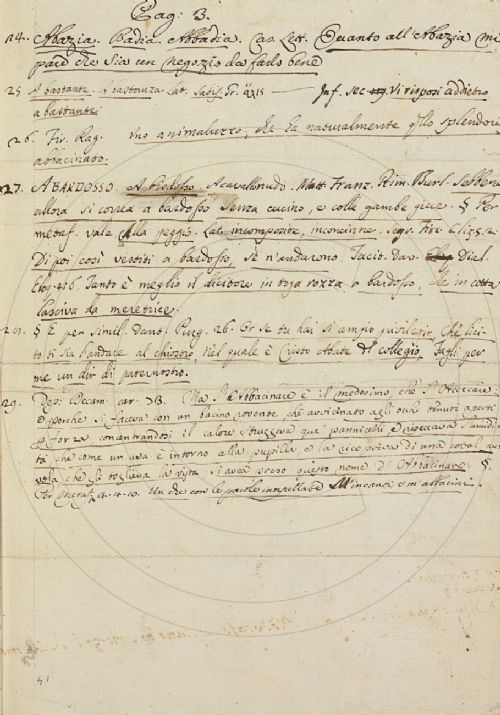 Pag: 3.
24. Abazia. Badia. Abbadia. Cas. Lett. Quanto all' Abazia mi
pare che sia un negozio da farlo bene
25 A bastante. A bastanza. Lat. Satis. Gr. Inf. sec. Vi risposi addietro
a bastante
26. Fir. Rag. Uno animaluzzo, che ha naturalmente q̃llo splendore
abbacinato.
27. A BARDOSSO. A bisdosso. A cavallonudo. Matt. Franz. Rim. Burl. Sebbene
allora si correa a bardosso senza cucino, e colle gambe giue. § Per
metaf. vale alla peggio. Lat. incomposite, inconcinne. Segr. Fior. Cliz. 5. 2.
Di poi così vestiti a bardosso, se n'andarono. Tacit. Dav. Dial.
Eloq. 416. Tanto è meglio il dicitore in toga rozza a bardosso, che in cotta
lasciva da meretrice.
§ E per simil. Dant. Purg. 26. Or se tu hai sì ampio privilegio, Che lici-
to ti sia l'andare al chiostro, Nel quale è Cristo Abate del collegio, Fagli per
me un dir di paternostro.
29. Dep. Decam. car. Ma l'Abbacinare è il medesimo che l'Accecare:
e perchè si faceva con un bacino rovente che avvicinato agli occhi tenuti aperti
per forza concentrandosi il calore struggeva que' pannicelli e riseccava l'umidi
tà che come un uva è intorno alla pupilla e la ricopriva di una cotal nu-
vola che gli toglieva la vista si avea preso questo nome d'Abbacinare. §
Per metaf. 4. 4. 10. Un che con le parole M'incanti e m'abbacini.